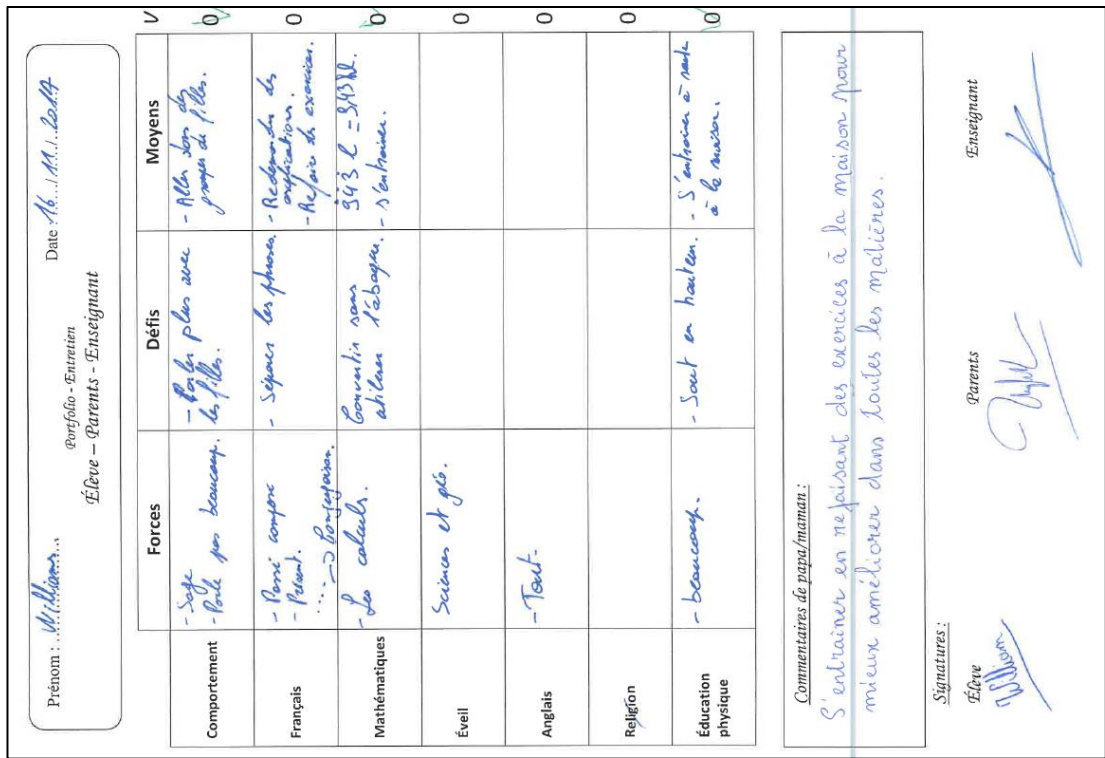 Prénom : Williams
Date : 16 / 11 / 2017
Portfolio - Entretien
Élève – Parents - Enseignant
Forces
Défis
Moyens
V
Comportement
- Sage
- Parle pas beaucoup.
- Parler plus avec
les filles.
- Aller dans des
groupes de filles.
O
Français
- Passé composé
- Présent.
..... -> Conjugaison.
- Séparer les phrases.
- Redemander des
explications.
- Refaire des exercices.
O
Mathématiques
- Les calculs.
Convertir sans
utiliser l'abaque.
943 l = 9,43 hl.
- s'entrainer.
O
Éveil
Sciences et géo.
O
Anglais
- Tout.
O
Religion
O
Éducation
physique
- beaucoup.
- Saut en hauteur.
- S'entrainer à saute
à la maison.
O
Commentaires de papa/maman :
S'entrainer en refaisant des exercices à la maison pour
mieux améliorer dans toutes les matières.
Signatures :
Élève
Parents
Enseignant
William